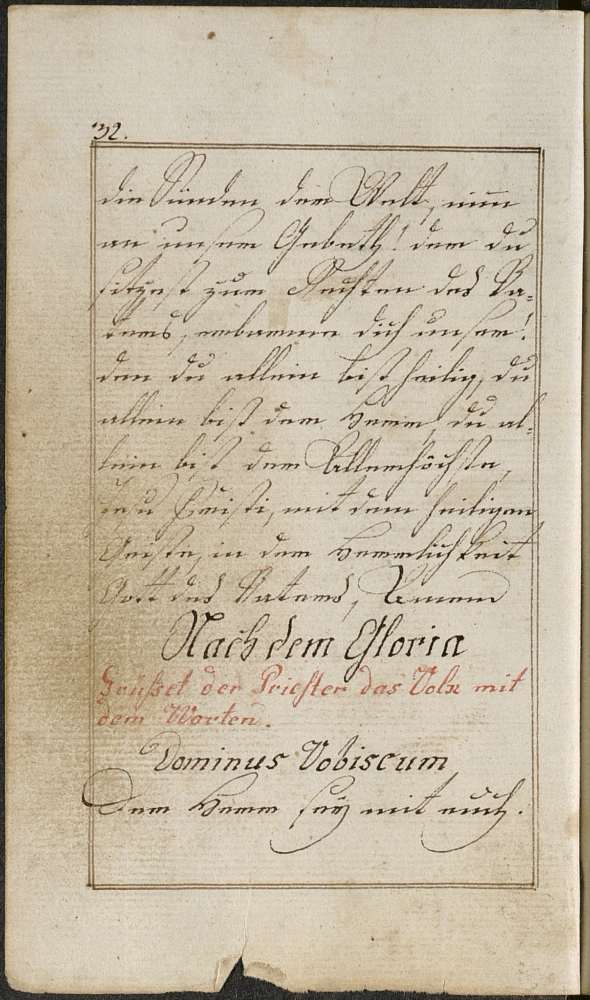 32.
die Sünden der Welt, nim̅
an unser Gebeth! der du
sitzest zur Rechten des Va-
ters, erbarme dich unser!
den du allein bist heilig, du
allein bist der Herr, du al-
lein bist der Allerhöchste,
Jesu Christi, mit dem heiligen
Geiste, in der Herrlichkeit
Gott des Vaters, Amen
Nach dem Gloria
Grüsset der Priester das Volk mit
dem Worten.
Dominus Vobiscum
Der Herr sey mit euch.